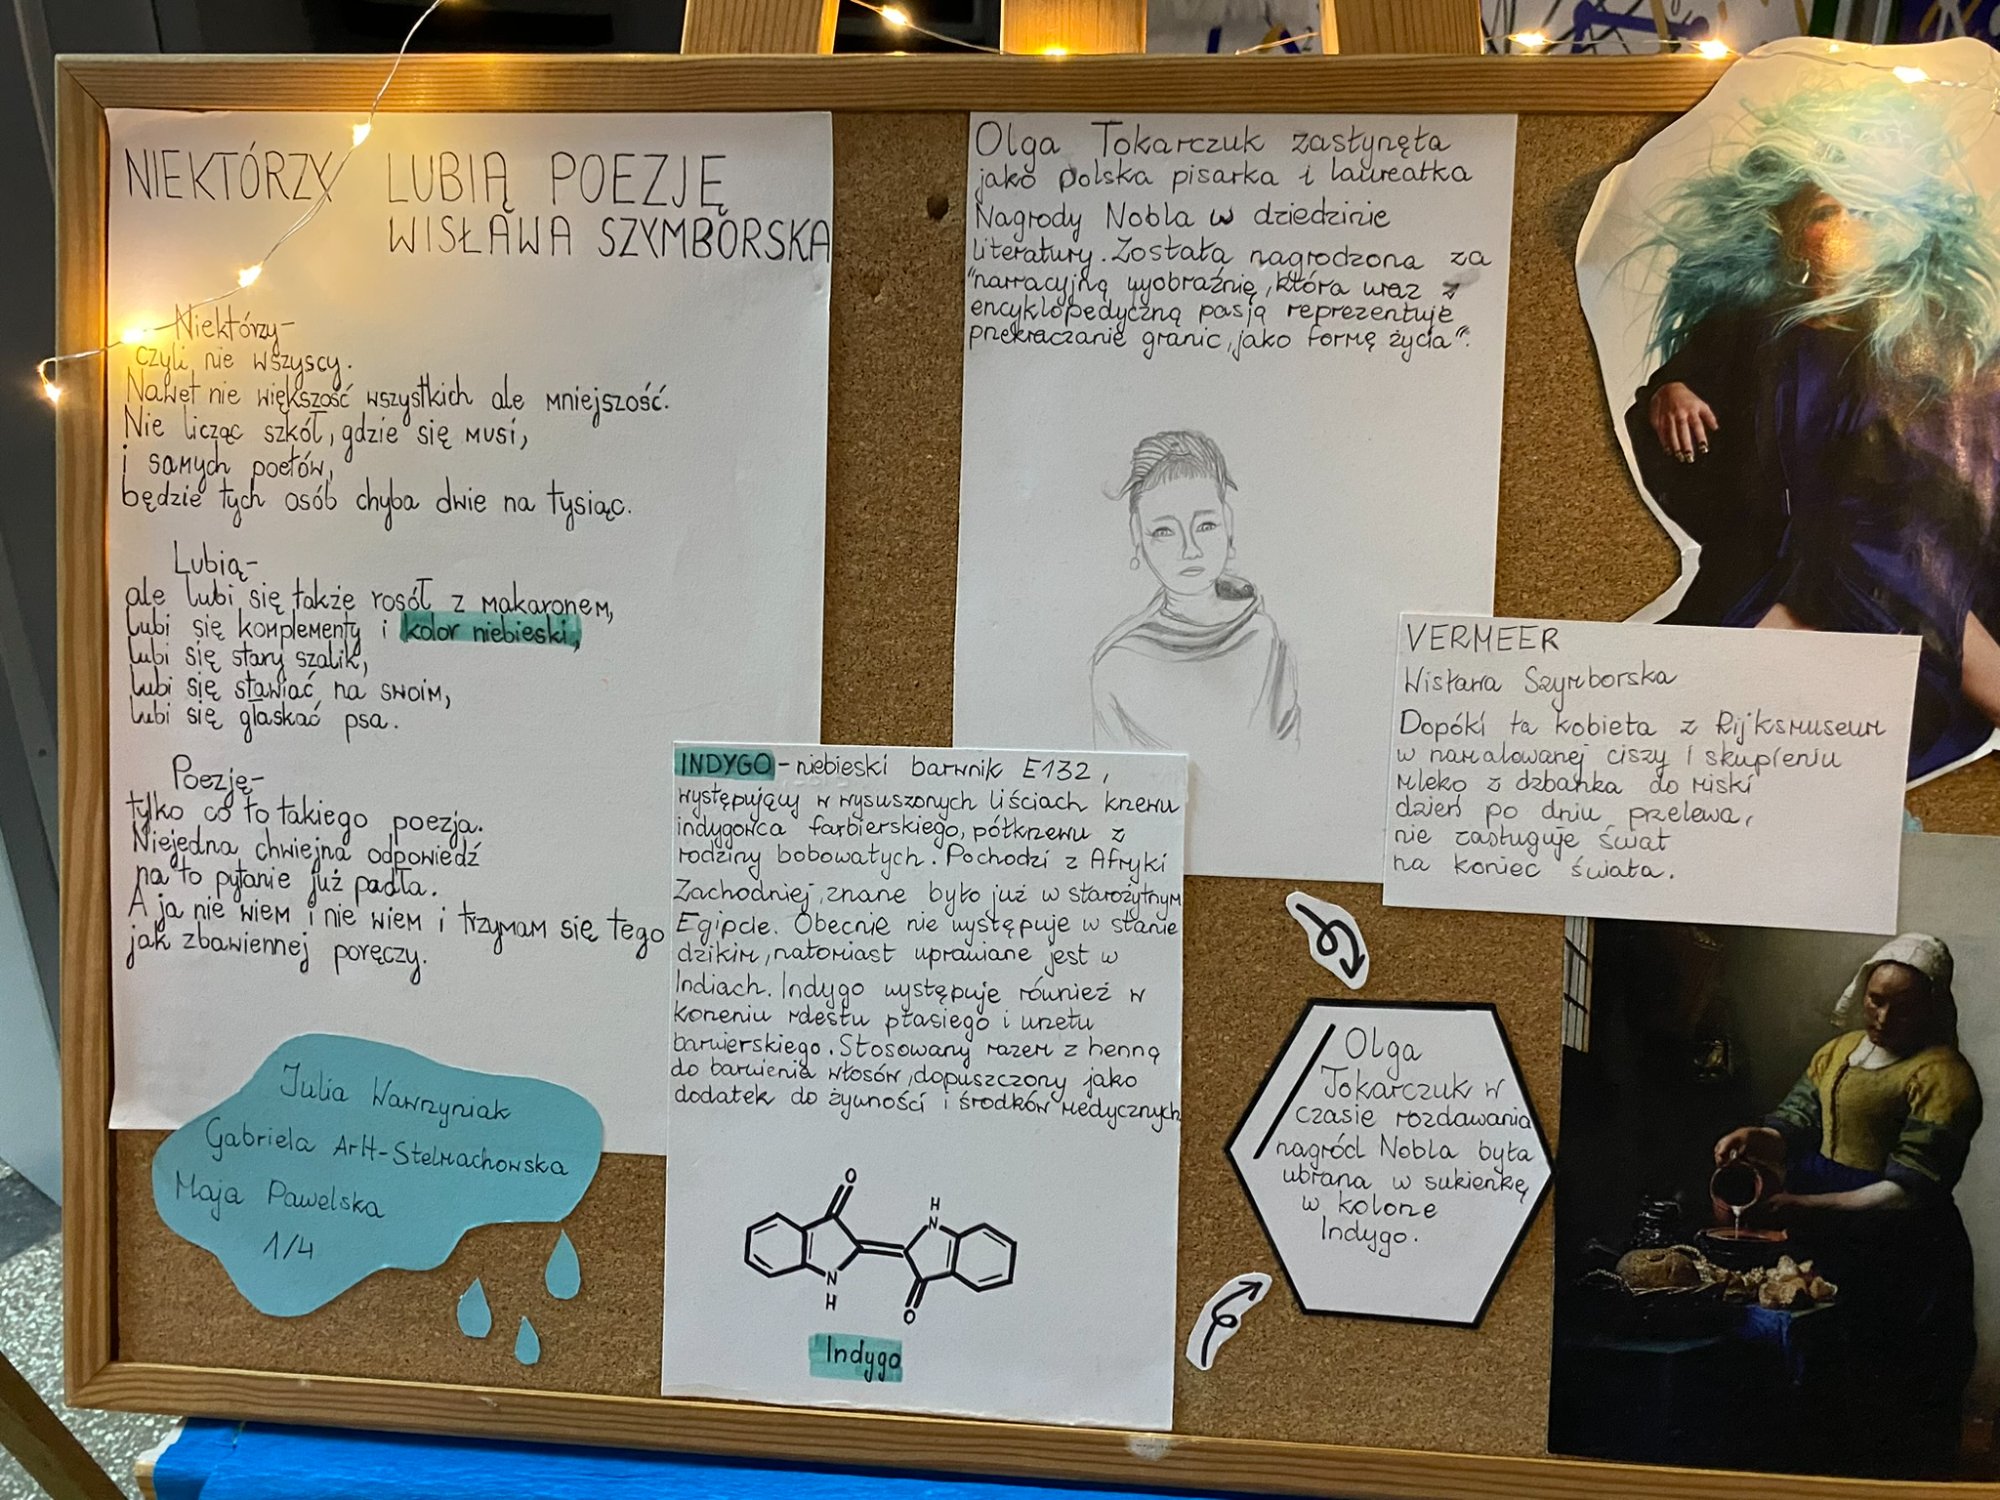 NIEKTÓRZY LUBIĄ POEZJĘ
WISŁAWA SZYMBORSKA
Niektórzy-
czyli nie wszyscy.
Nawet nie większość wszystkich ale mniejszość.
Nie licząc szkół, gdzie się musi,
i samych poetów,
będzie tych osób chyba dwie na tysiąc.
Lubią-
ale lubi się także rosół z makaronem,
lubi się komplementy i kolor niebieski,
lubi się stary szalik,
lubi się stawiać na swoim,
lubi się głaskać psa.
Poezję-
tylko co to takiego poezja.
Niejedna chwiejna odpowiedź
na to pytanie już padła.
A ja nie wiem i nie wiem i trzymam się tego
jak zbawiennej poręczy.
Julia Wawrzyniak
Gabriela Artt-Stelmachowska
Maja Pawelska
1/4
INDYGO - niebieski barwnik E132,
występujący w wysuszonych liściach krzewu
indygowca farbierskiego, półkrzewu z
rodziny bobowatych. Pochodzi z Afryki
Zachodniej, znane było już w starożytnym
Egipcie. Obecnie nie występuje w stanie
dzikim, natomiast uprawiane jest w
Indiach. Indygo występuje również w
korzeniu rdestu ptasiego i urzetu
barwierskiego. Stosowany razem z henną
do barwienia włosów, dopuszczony jako
dodatek do żywności i środków medycznych
O
H
N
N
H
O
Indygo
Olga Tokarczuk zasłynęła
jako polska pisarka i laureatka
Nagrody Nobla w dziedzinie
literatury. Została nagrodzona za
"narracyjną wyobraźnię, która wraz z
encyklopedyczną pasją reprezentuje
przekraczanie granic, jako formę życia".
VERMEER
Wisława Szymborska
Dopóki ta kobieta z Rijksmuseum
w namalowanej ciszy i skupieniu
mleko z dzbanka do miski
dzień po dniu przelewa,
nie zasługuje Świat
na koniec świata.
Olga
Tokarczuk w
czasie rozdawania
nagród Nobla była
ubrana w sukienkę
w kolorze
Indygo.